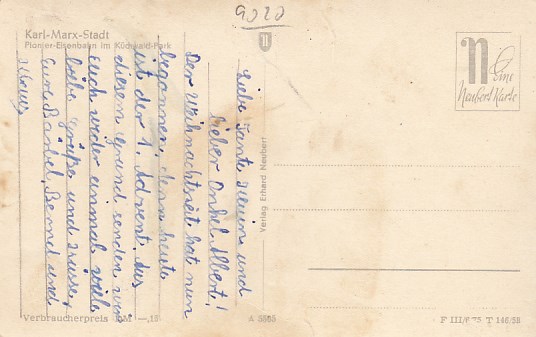 9020
Karl-Marx-Stadt
Pionier-Eisenbahn im Küchwald-Park
Liebe Tante und
lieber Onkel Albert!
Der Weihnachtszeit hat nun
begonnen, denn heute
ist der 1. Advent. Aus
diesem Grund senden wir
Euch wieder einmal viele
liebe Grüße und
Eure Bärbel, Bernd und
Verlag Erhard Neubert
N
Eine
Neubert Karte
Verbraucherpreis DM
F III/ T 146/58